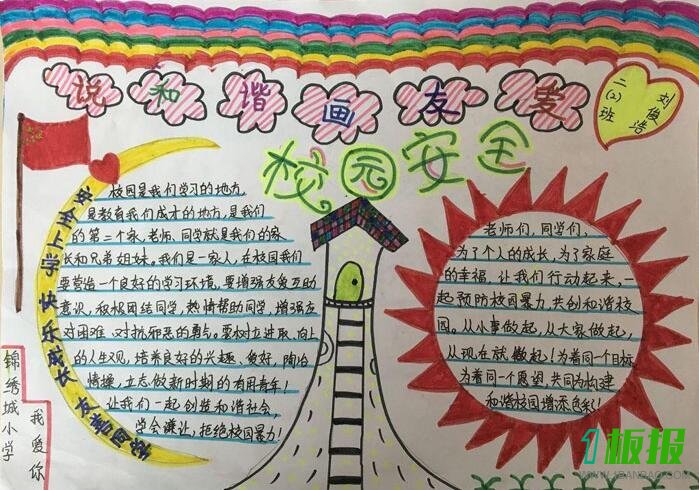 说和谐画友爱
二(2)班
刘俊浩
校园安全
安全上学 快乐成长 友善同学
校园是我们学习的地方,
是教育我们成才的地方,是我们
的第二个家,老师、同学就是我们的家
长和兄弟姐妹,我们是一家人,在校园我们
要营治一个良好的学习环境,要增强友爱互助
意识,积极团结同学,热情帮助同学,增强友
对困难、对抗邪恶的勇气。要树立进取、向上
的人生观,培养良好的兴趣、爱好,陶冶
情操,立志做新时期的有用青年!
让我们一起创造和谐社会,
学会谦让,拒绝校园暴力!
老师们,同学们,
为了个人的成长,为了家庭
的幸福,让我们行动起来,一
起预防校园暴力,共创和谐校
园。从小事做起,从大家做起,
从现在就做起!为着同一个目标
为着同一个愿望,共同为构建
和谐校园增添色彩!
锦绣城小学
我爱你
1板报
WWW.1BANBAO.COM